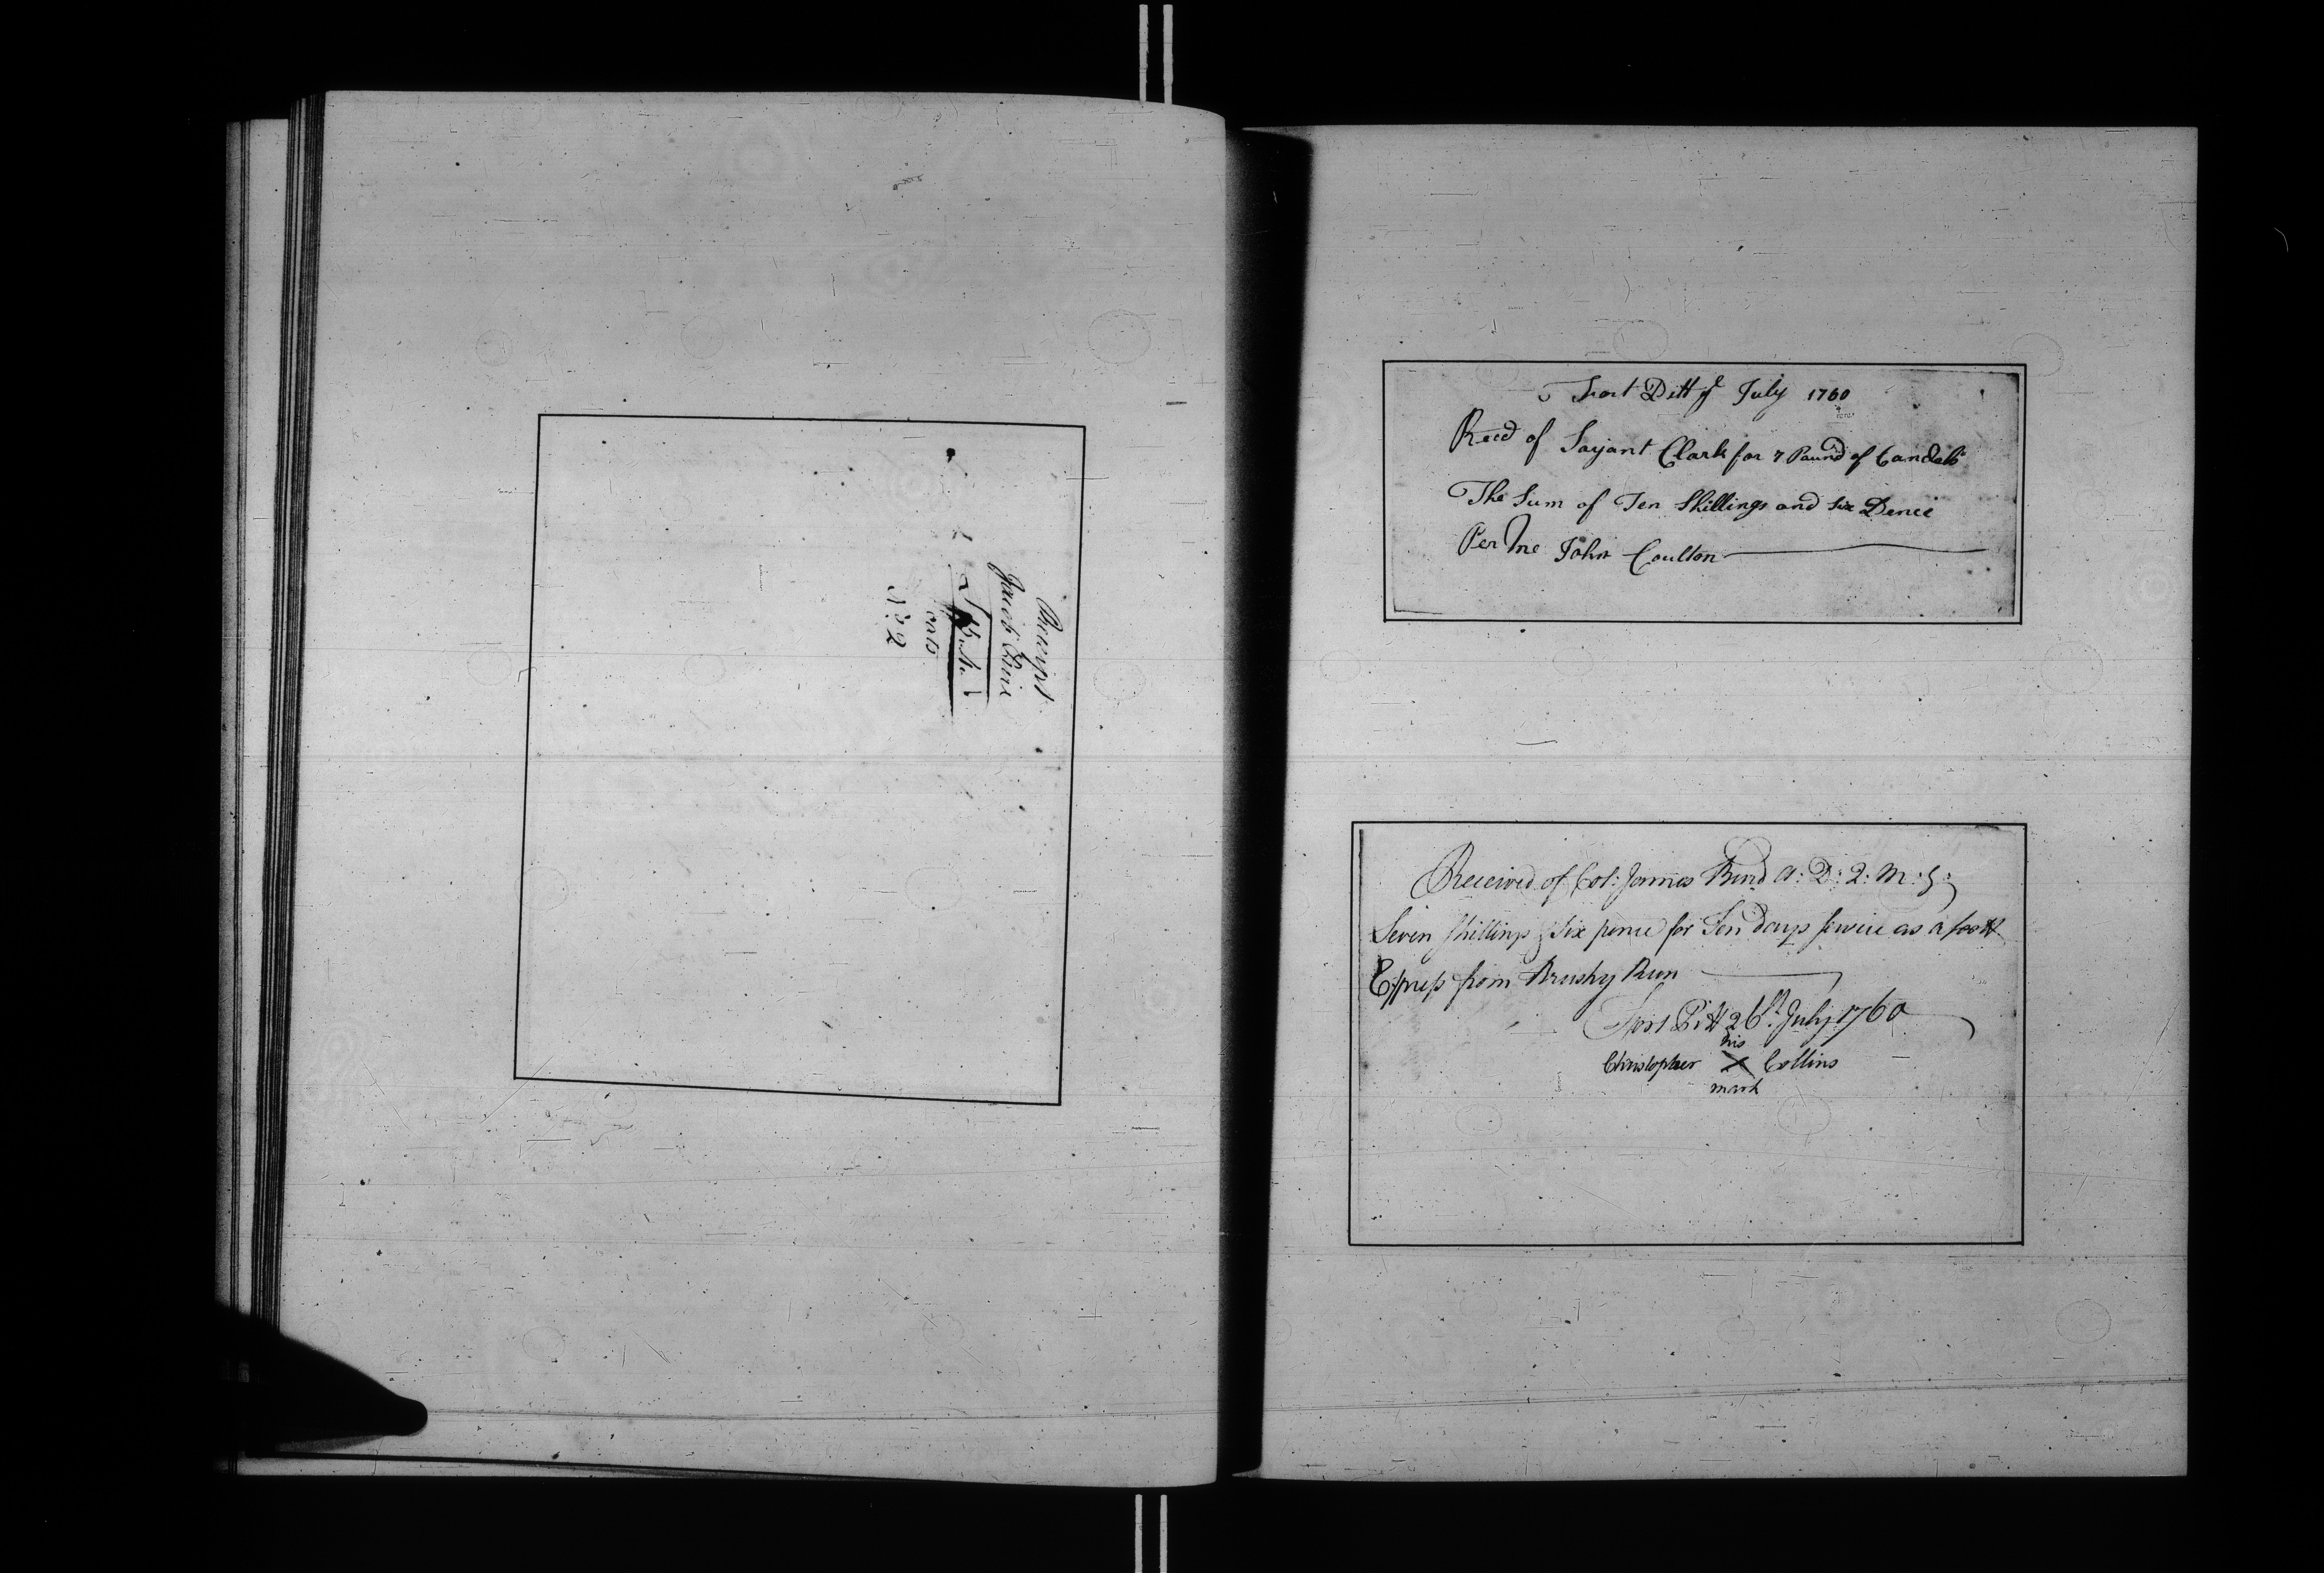 Receipt
Jacob
N:o 2
Fort Pitt ye July 1760
Recd of Sarjant Clark for 7 Pound of Candels
The Sum of Ten Shillings and Six Pence
Per Me John Coulton
Received of Col: James Burd A: D: Q: M: G:
Seven Shillings & Six pence for Ten days service as a foott
Express from Brushy Run
Fort Pitt 26th July 1760
his
Christopher X Collins
mark